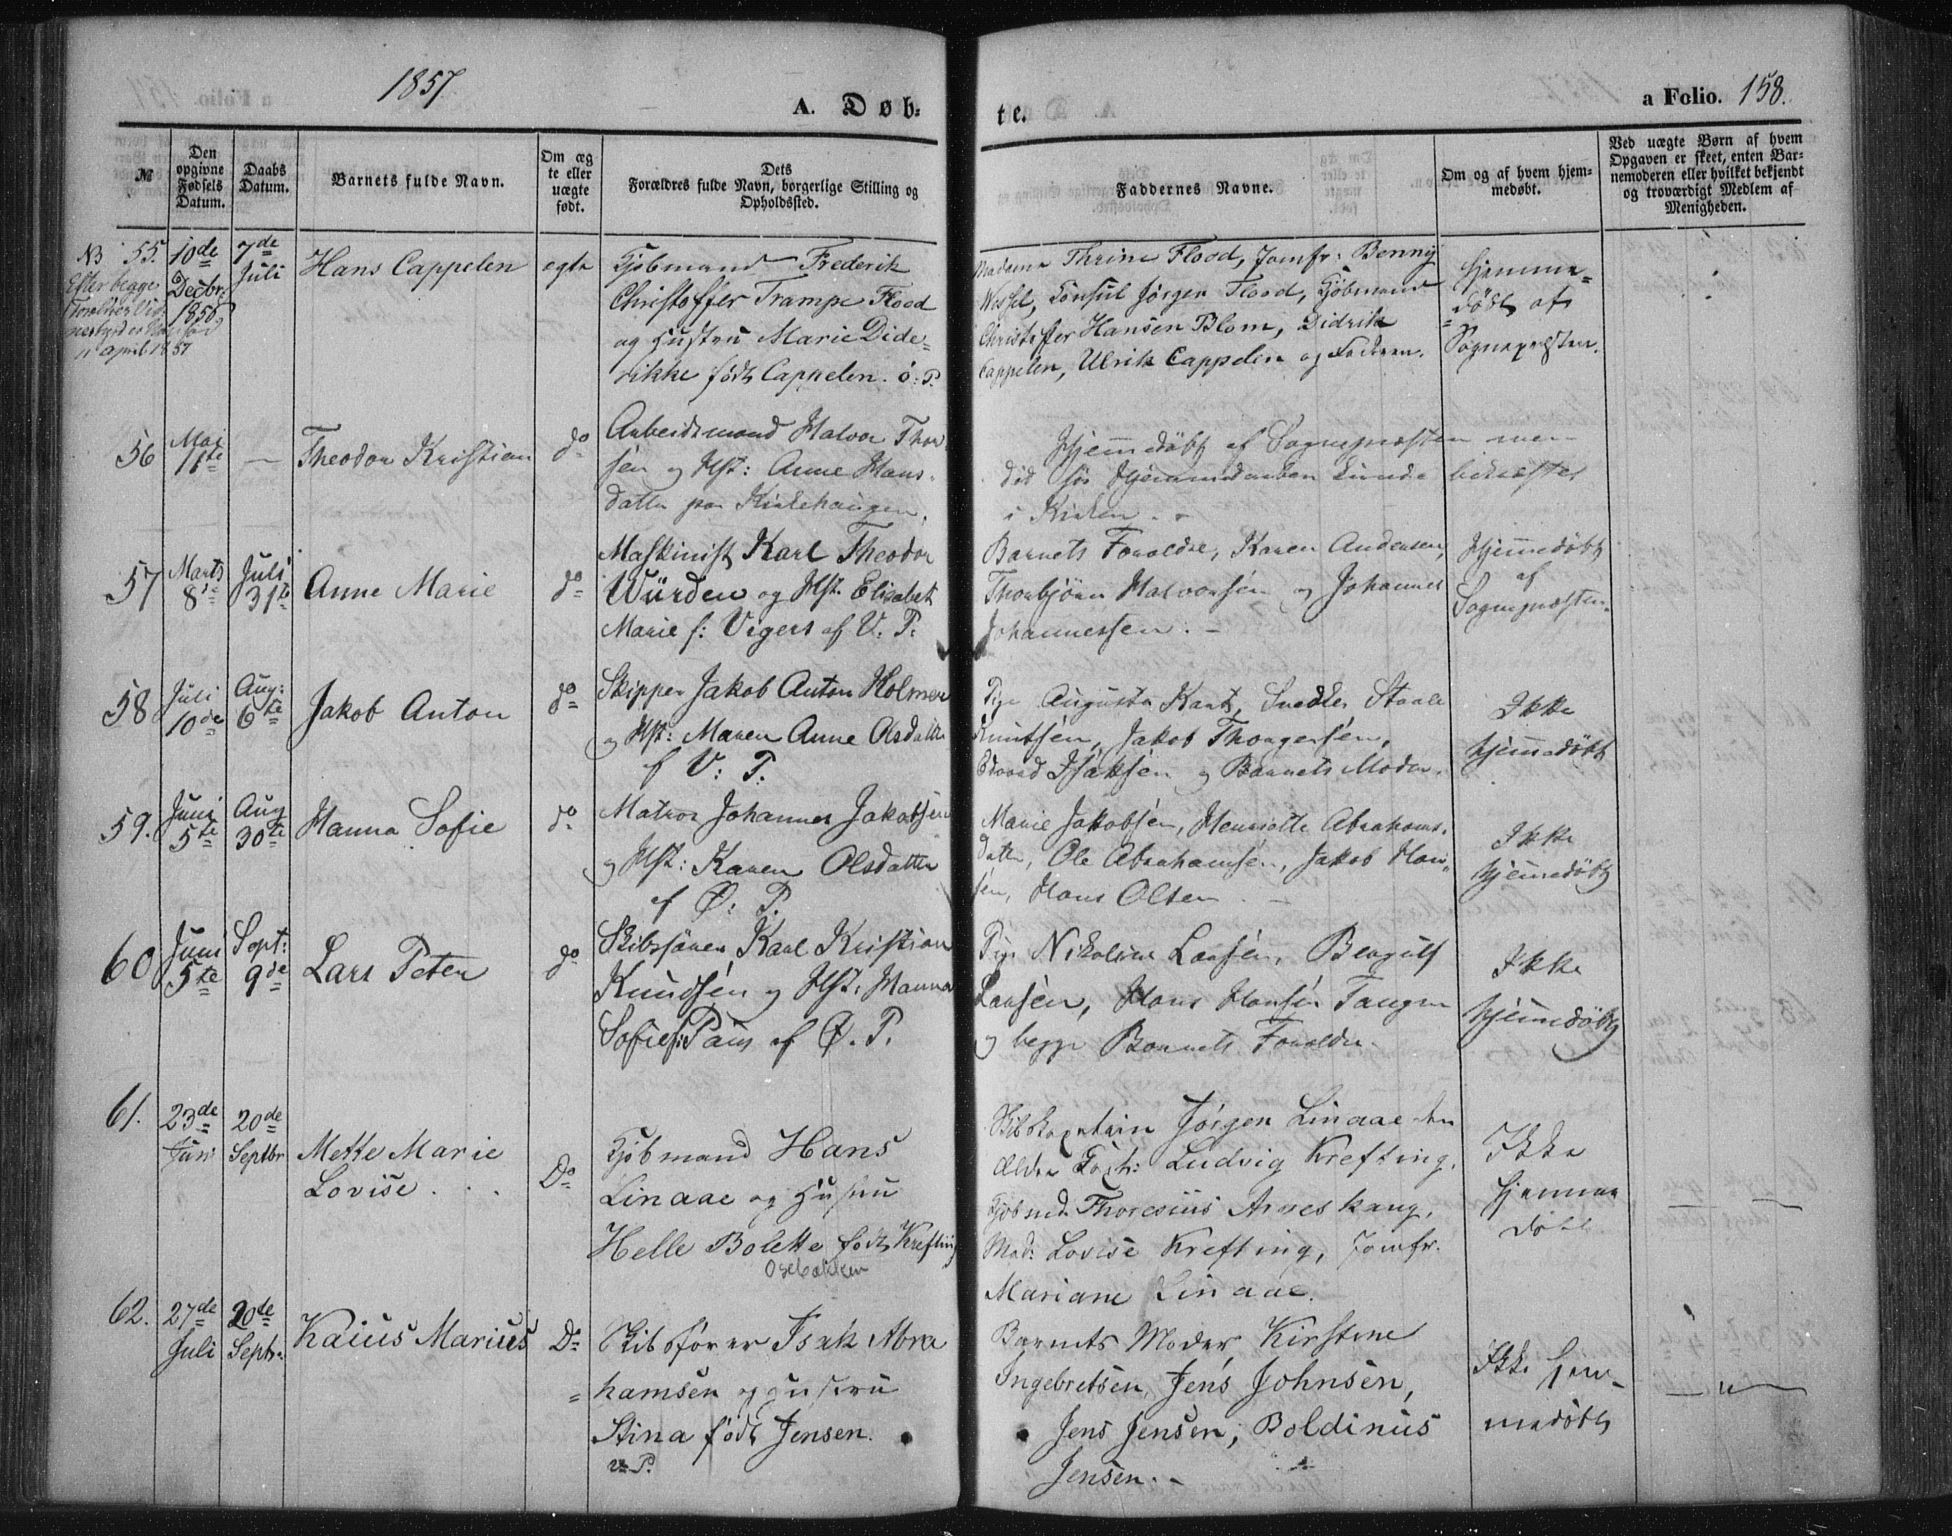 1857.
A. Døb-
te.
a Folio. 158.
№
Den opgivne Fødsels Datum.
Daabs Datum.
Barnets fulde Navn.
Om ægte eller uægte født.
Dets
Forældres fulde Navn, borgerlige Stilling og
Opholdssted.
Faddernes Navne.
Om og af hvem hjem-
medøbt.
Ved uægte Børn af hvem
Opgaven er skeet, enten Bar-
nemoderen eller hvilket bekjendt
og troværdigt Medlem af
Menigheden.
NB 55.
Efter begge
11 April 1857
10de
Decbr.
1856
7de
Juli
Hans Cappelen
egte
Kjøbmand Frederik
Christoffer Trampe Flood
og Hustru Marie Dide-
rikke født Cappelen. ö: P.
Madame Thrine Flood, Jomfr: Benny
Wessel, Consul Jørgen Flood, Kjøbmand
Christoffer Hansen Blom, Didrik
Cappelen, Ulrik Cappelen og Faderen.
Hjemme-
døbt af
Sognepræsten.
56
Mai
11te
—
Theodor Kristian
do
Arbeidsmand Halvor Thor
sen og Hst: Anne Hans-
datter paa Kirkehaugen.
Hjemmedøbt af Sognepræsten men
død før Hjemmedaaben kunde bekræftes
i Kirken.
57
Marts
8de
Juli
31te
Anne Marie
do
Maskinist Karl Theodor
Würden og Hst. Elisabet
Marie f: Vegers af V: P:
Barnets Forældre, Karen Andersen,
Thorbjørn Halvorsen og Johannes
Johannessen. —
Hjemmedøbt
af
Sognepræsten.
58
Juli
10de
Aug:
6te
Jakob Anton
do
Skipper Jakob Anton Holmer
og Hst: Maren Anne Olsdatter
af V: P.
Pige Augusta Kant, Snedker Staale
Knutsen, Jakob Thorgersen,
Edvard Isaksen og Barnets Moder.
Ikke
hjemmedøbt
59.
Juni
5te
Aug
30te
Hanna Sofie
do
Matros Johannes Jakobsen
og Hst: Karen Olsdatter
af Ø: P.
Marie Jakobsen, Henriette Abrahams-
datter, Ole Abrahamsen, Jakob Han-
sen, Hans Olsen. —
Ikke
hjemmedøbt
60
Juni
5te
Sept:
9de
Lars Peter
do
Skibsfører Karl Kristian
Knudsen og Hst: Hanna
Sofie f: Paus af Ø. P.
Pige Nikoline Larsen, Bergulf
Larsen, Hans Hansen Tangen
og begge Barnets Forældre.
Ikke
hjemmedøbt
61.
23de
Juni
20de
Septbr
Mette Marie
Lovise . . .
Do
Kjøbmand Hans
Linaae og Hustru
Helle Bolette født Krefting
Osebakken
Skibskaptain Jørgen Linaae den
Ældre Ludvig Krefting,
Kjøbmd. Thoresius Arveskaug,
Mad: Lovise Krefting, Jomfr.
Mariane Linaae.
Ikke
hjemme
døbt
62.
27de
Juli
20te
Septr.
Kaius Marius
Do
Skibsfører Isak Abra
hamsen og Hustru
Stina født Jensen.
v. P.
Barnets Moder, Kirstene
Ingebretsen, Jens Johnsen,
Jens Jensen, Boldinus
Jensen. —
Ikke hjem-
medøbt
— " —